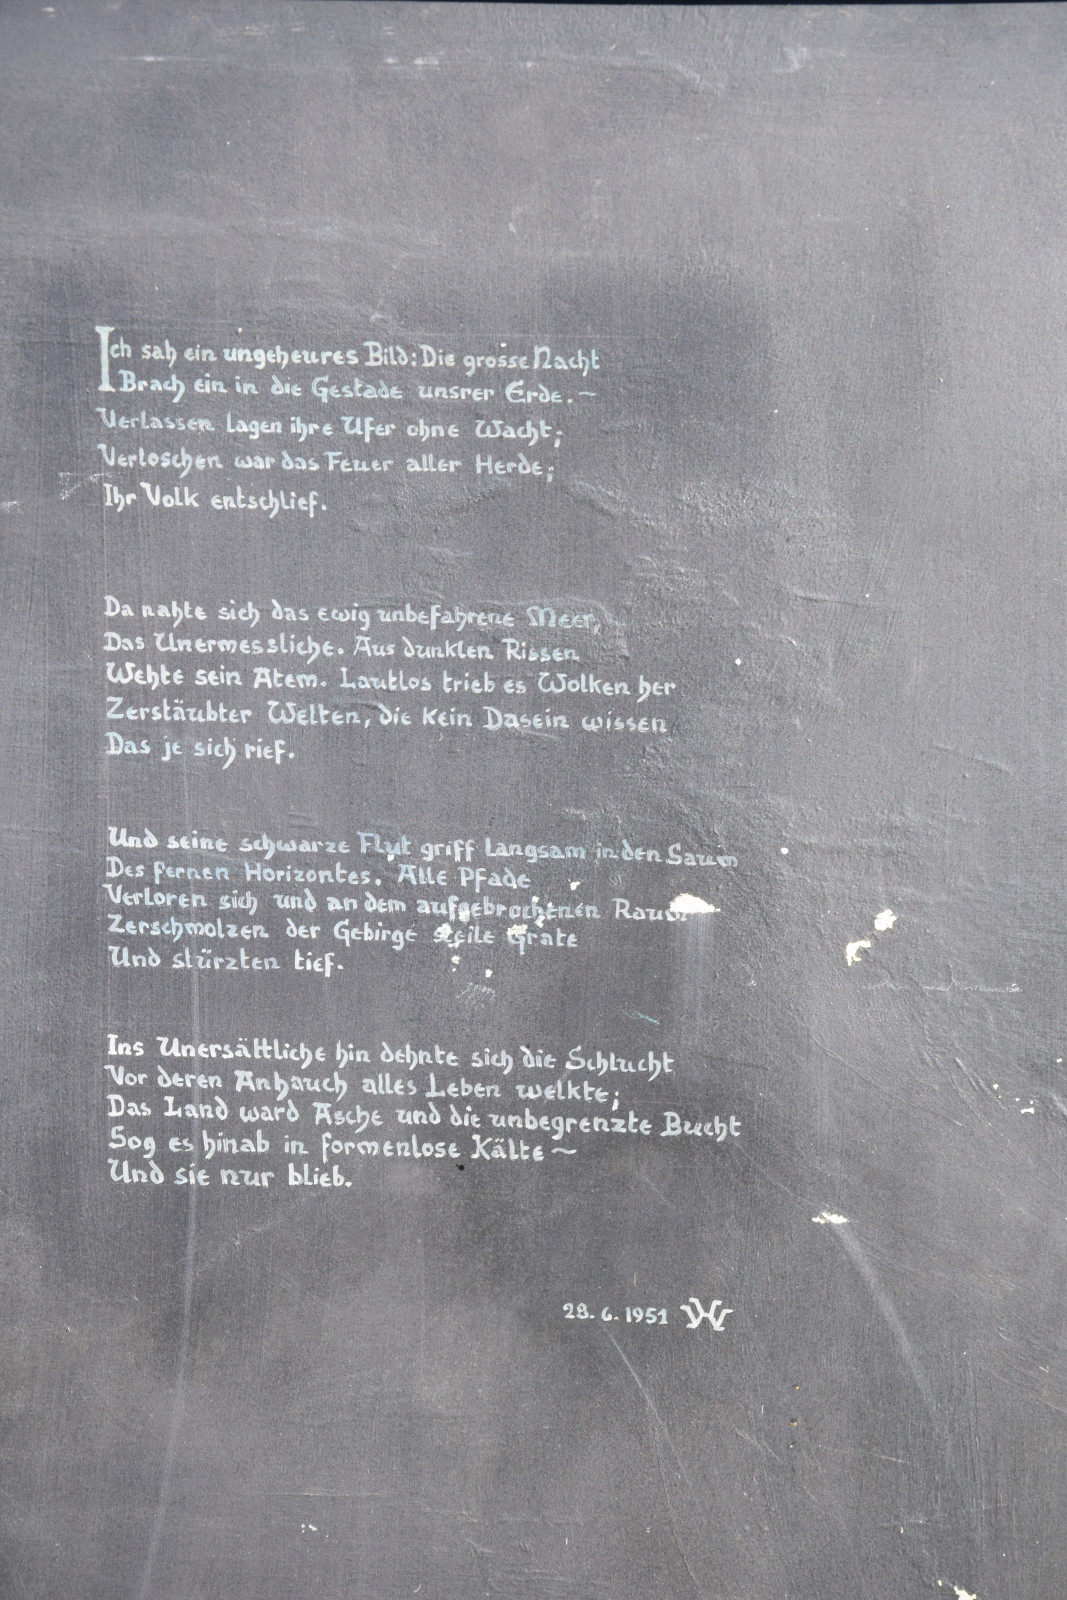 Ich sah ein ungeheures Bild: Die grosse Nacht
Brach ein in die Gestade unsrer Erde. ~
Verlassen lagen ihre Ufer ohne Wacht;
Verloschen war das Feuer aller Herde;
Ihr Volk entschlief.
Da nahte sich das ewig unbefahrene Meer,
Das Unermessliche. Aus dunklen Rissen
Wehte sein Atem. Lautlos trieb es Wolken her
Zerstäubter Welten, die kein Dasein wissen
Das je sich rief.
Und seine schwarze Flut griff langsam in den Saum
Des fernen Horizontes. Alle Pfade
Verloren sich und an dem aufgebrochenen Raum
Zerschmolzen der Gebirge steile Grate
Und stürzten tief.
Ins Unersättliche hin dehnte sich die Schlucht
Vor deren Anhauch alles Leben welkte;
Das Land ward Asche und die unbegrenzte Bucht
Sog es hinab in formenlose Kälte ~
Und sie nur blieb.
28. 6. 1951